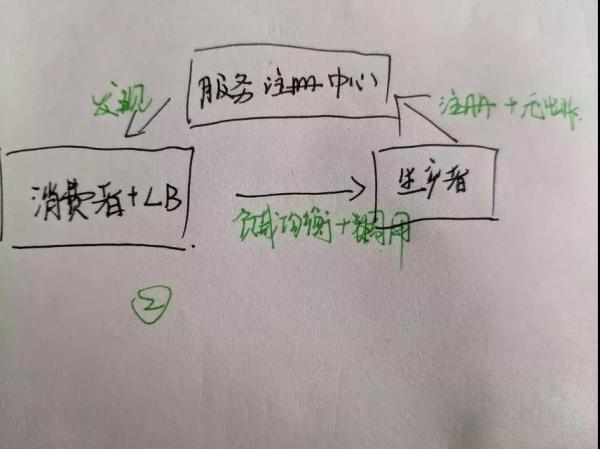 服务注册中心
发现
注册+心跳
消费者+LB
生产者
负载均衡+调用
②